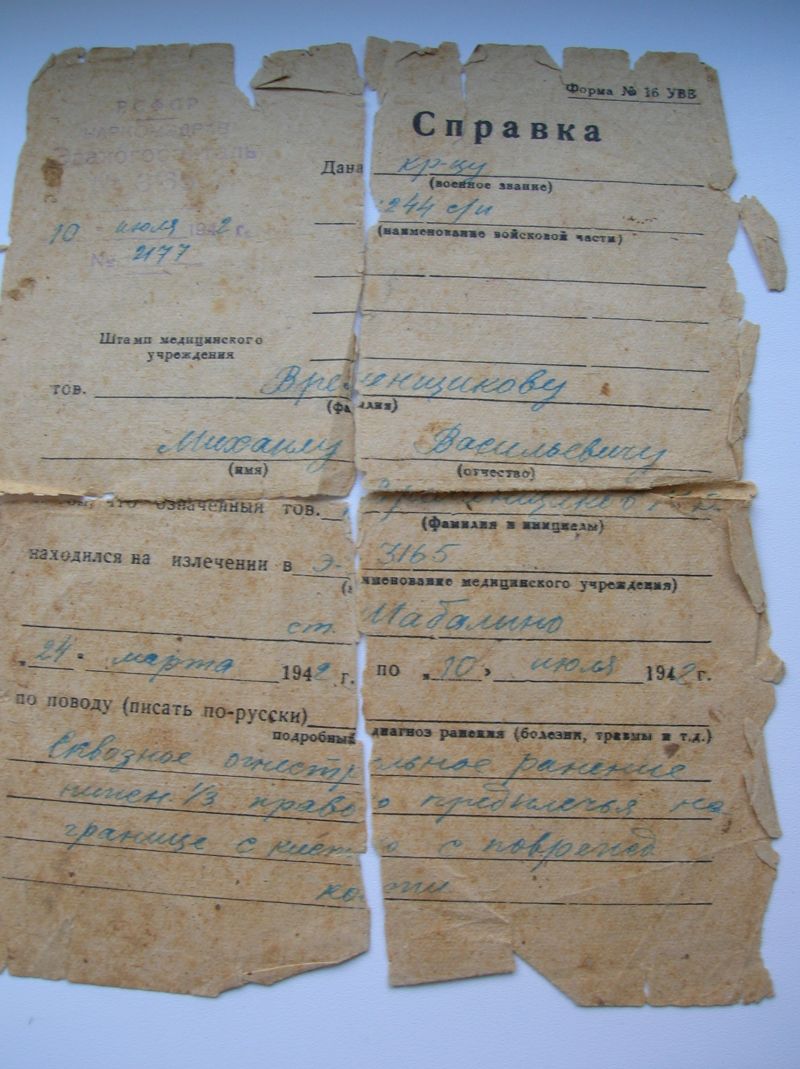 Форма № 16 УВВ
РСФСР
НАРКОМЗДРАВ
Эвакогоспиталь
Справка
Дана кр-цу
(военное звание)
244 с/п
10 июля 1942 г.
(наименование войсковой части)
№ 2177
Штамп медицинского
учреждения
тов. Временщикову
(фамилия)
Михаилу Васильевичу
(имя) (отчество)
что означенный тов.
(Фамилия и инициалы)
находился на излечении в Э- 3165
(наименование медицинского учреждения)
ст.
„24" марта 1942 г. по „10" июля 1942 г.
по поводу (писать по-русски)
подробный диагноз ранения (болезни, травмы и т.д.)
Сквозное огнестрельное ранение
нижн. 1/3 правого на
границе с кистью с
кости